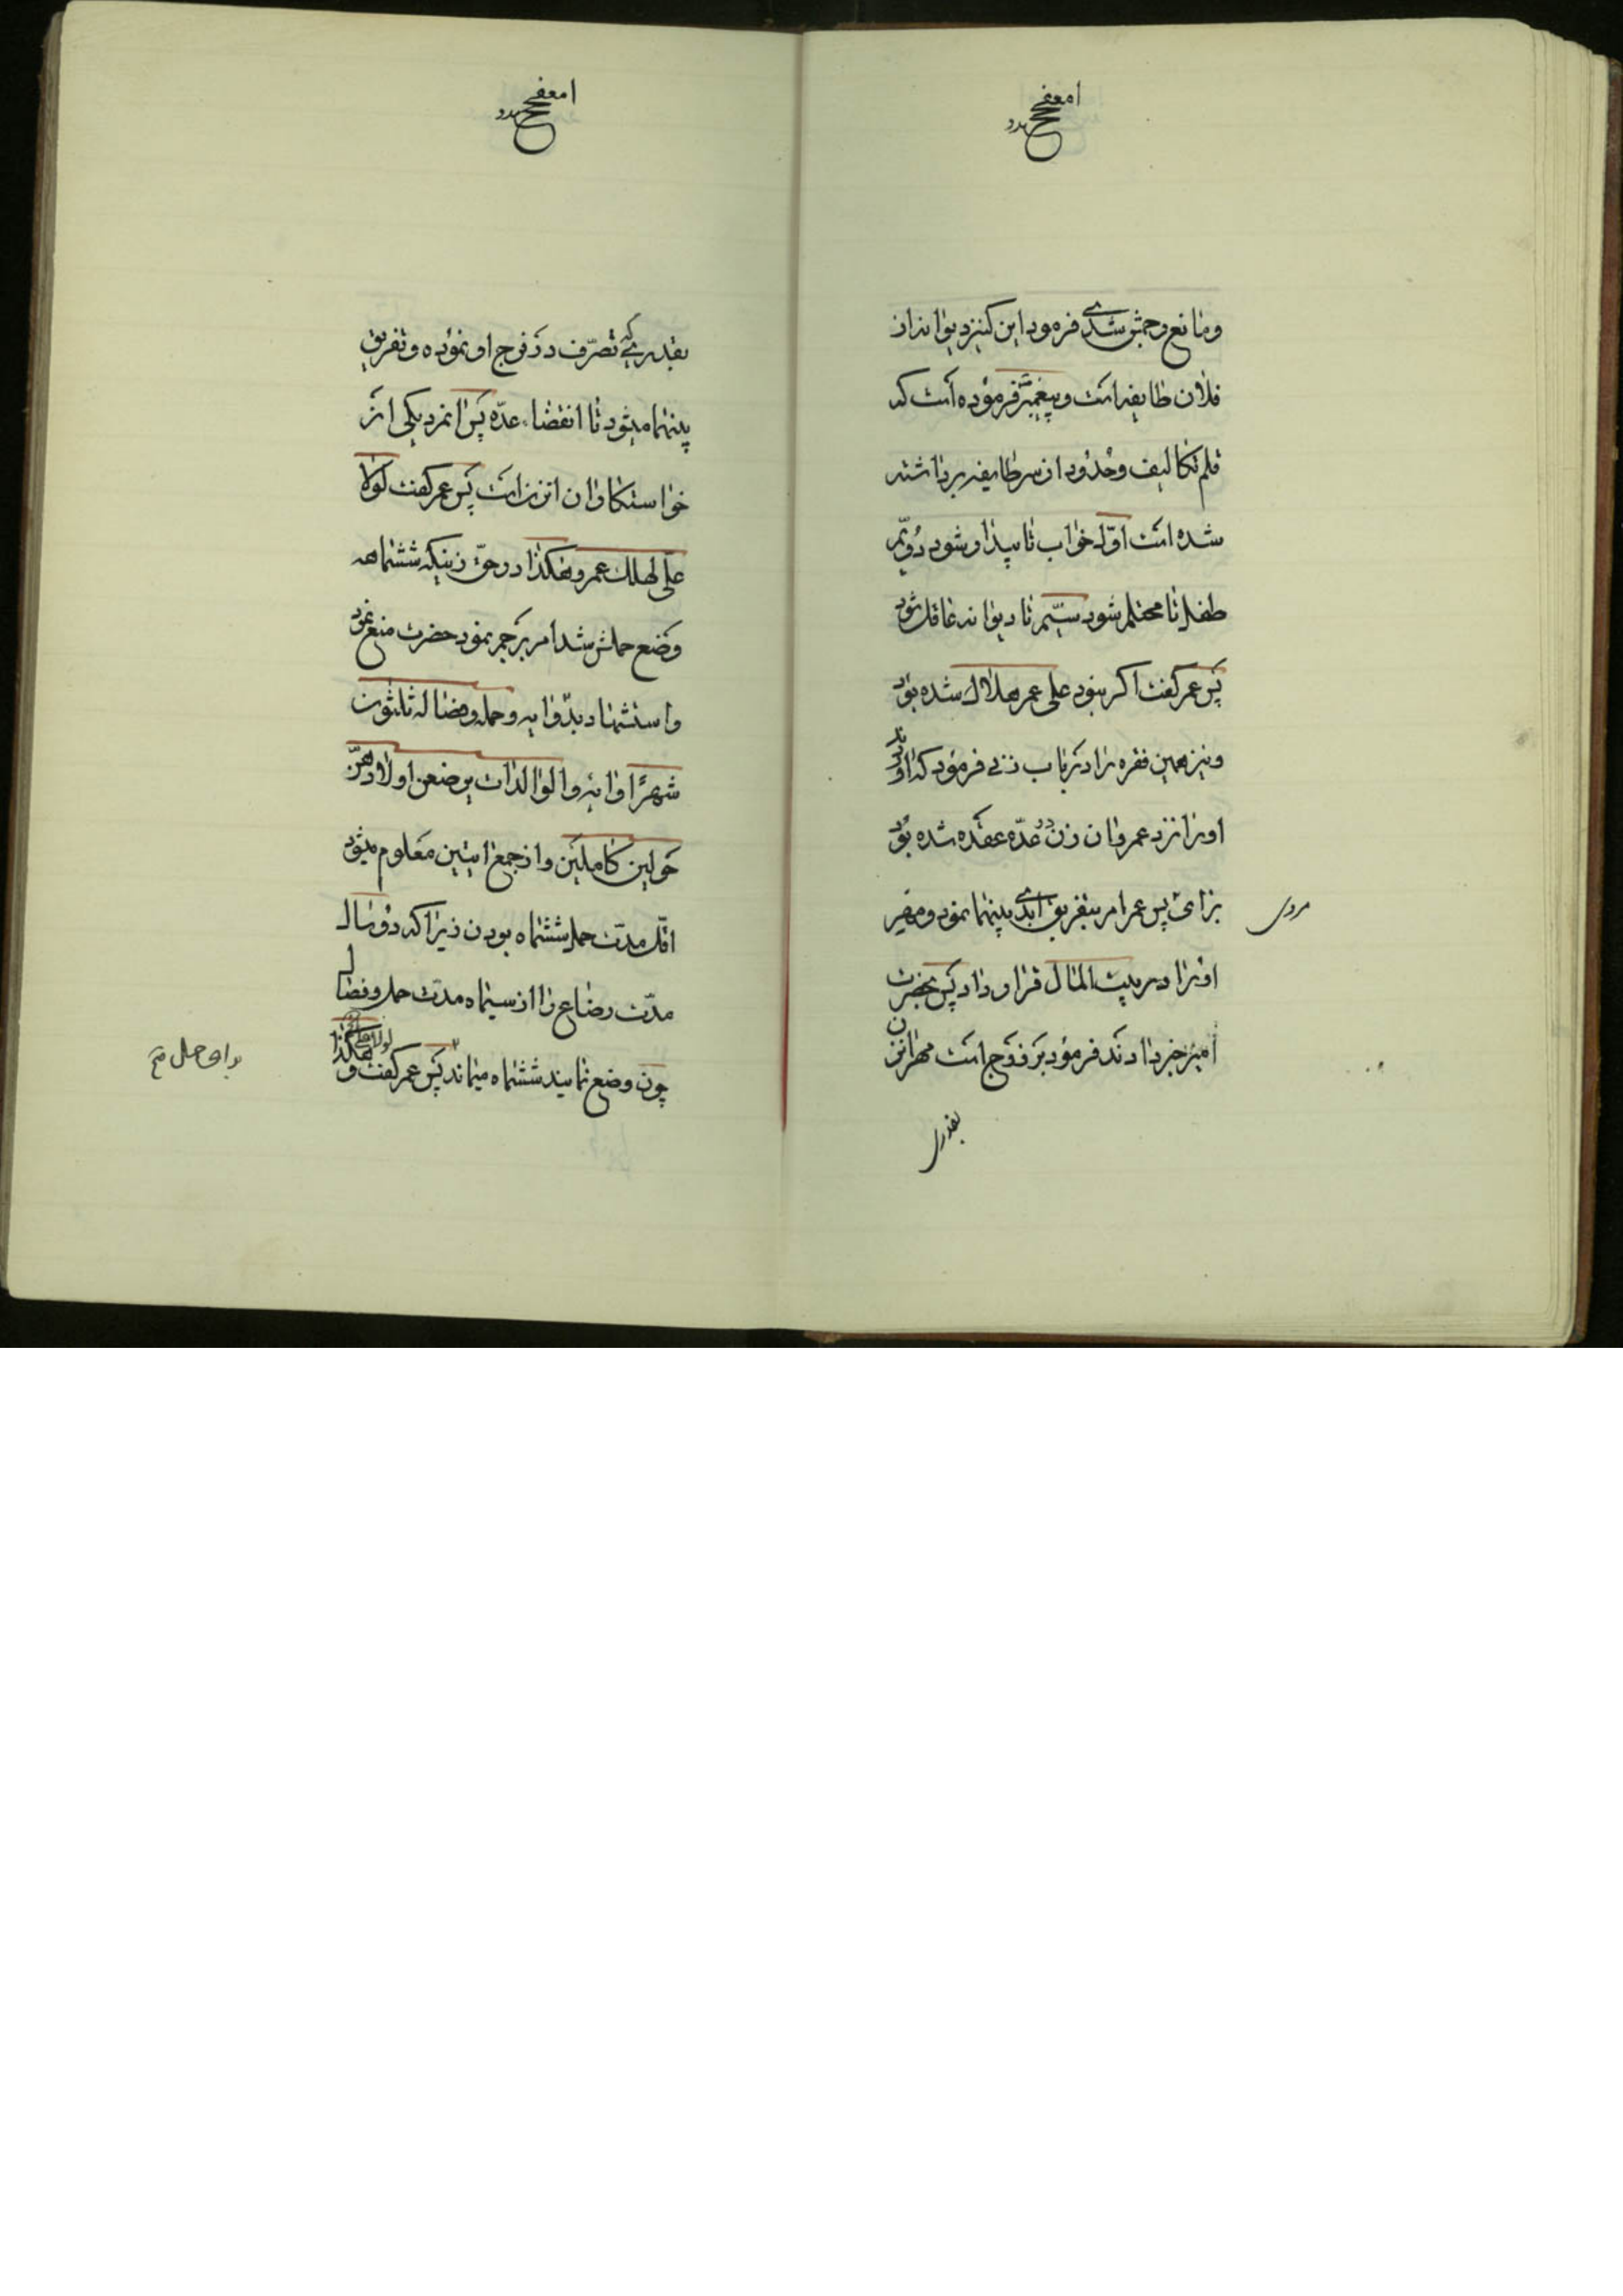 ومانع رجمش شدی فرمود این کنیز دیوانه از
فلان طایفه است و پیغمبر فرموده است که
قلم تکالیف و حدود از سر طایفه برداشته
شده است اوّل خواب تا بیدار شود دُویّم
طفل تا محتلم شود سیّیم تا دیوانه عاقل شود
پس عمر گفت اگر نبود علی عمر هلاک شده بود
و نیز همین فقره را در باب زنی فرمود که آوردند
او را نزد عمر و آن زن در عدّه عقد شده بود
برای پس عمر امر بتفریق ابدی بینهما نمود و مهر
مردی
او را در بیت المال قرار داد پس بحضرت
امیر خبر دادند فرمود بر زوج است مهر آن زن
بقدری
بقدریکه تصرّف در فرج او نموده و تفریق
بینهما میشود تا انقضاء عدّه پس آنمرد یکی از
خواستکاران آنزن است پس عمر گفت لولا
علی لهلک عمر و همکذا در حقّ زنیکه ششماهه
وضع حملش شد امر برجم نمود حضرت منع نمود
و استشهاد بدو آیه و حمله و فصاله ثلثون
شهرًا و آیه والوالدات یرضعن اولادهنّ
حولین کاملین و از جمع ایتین معلوم میشود
اقل مدّت حمل ششماه بودن زیرا که دو سال
مدّت رضاع را از سیماه مدّت حمل و فصال
چون وضع نمایند ششماه میماند پس عمر گفت لولا علی و همکذا